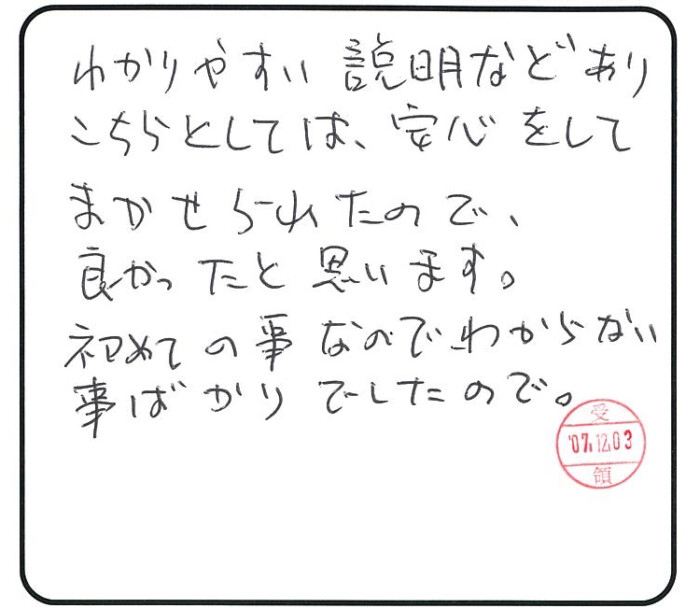 わかりやすい説明などあり
こちらとしては、安心をして
まかせられたので、
良かったと思います。
初めての事なのでわからない
事ばかりでしたので。
受
'07.12.03
領